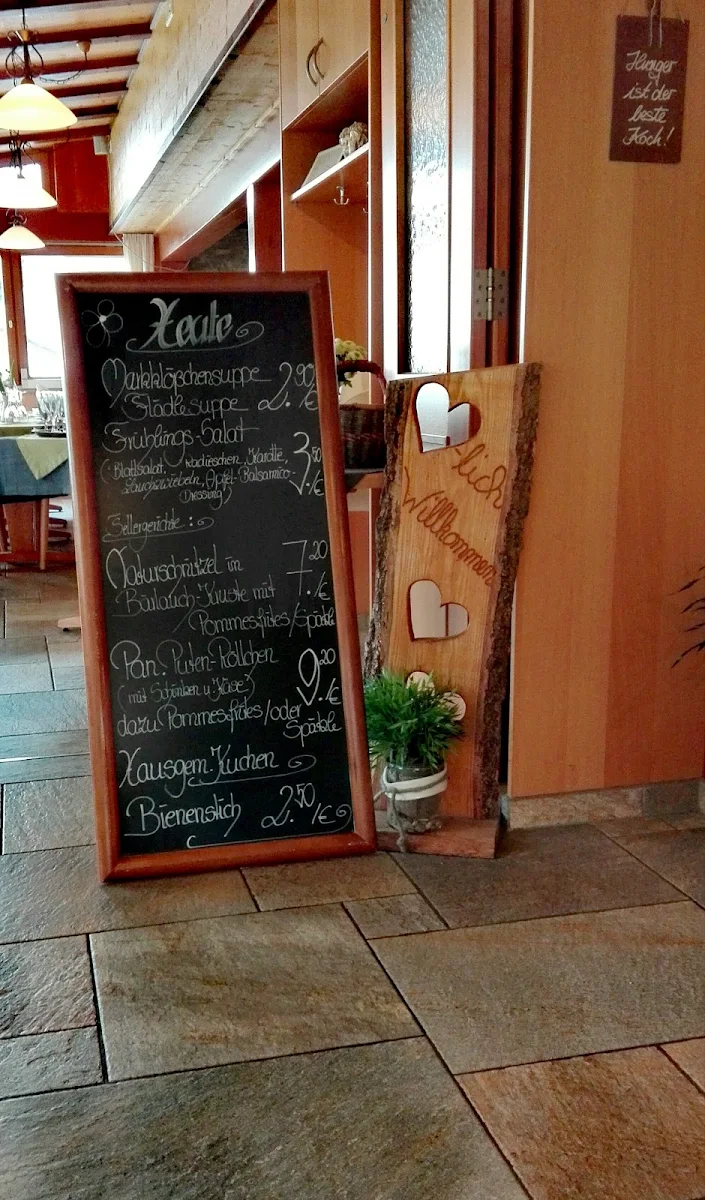 Heute
Markklößchensuppe 2.90
Flädlesuppe /€
Frühlings-Salat
(Blattsalat, Radieschen, Karotte, 3.50
Lauchzwiebeln, Apfel-Balsamico- /€
Dressing)
Tellergerichte:
Naturschnitzel in 7.20
Bärlauch-Kruste mit /€
Pommesfrites/Spätzle
Pan. Puten-Röllchen 9.20
(mit Schinken u. Käse) /€
dazu Pommesfrites/oder
Spätzle
Hausgem. Kuchen
Bienenstich 2.50/€
-lich
Willkommen
Hunger
ist der
beste
Koch!